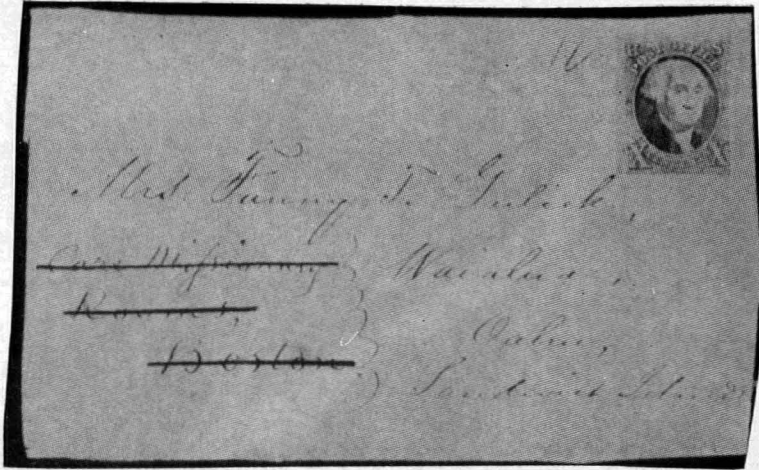 POST OFFICE
Mrs. Fanny T. Gulick,
Care Missionary
Rooms,
Boston
Waialua,
Oahu,
Sandwich Islands